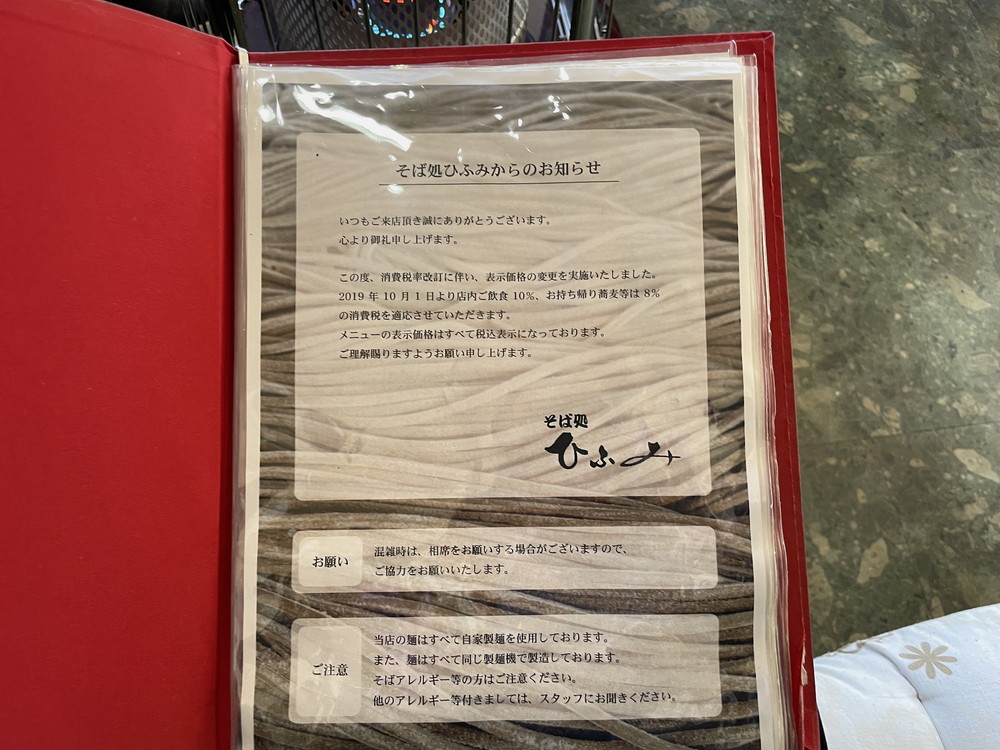 そば処ひふみからのお知らせ
いつもご来店頂き誠にありがとうございます。
心より御礼申し上げます。
この度、消費税率改訂に伴い、表示価格の変更を実施いたしました。
2019 年 10 月 1 日より店内ご飲食 10%、お持ち帰り蕎麦等は 8%
の消費税を適応させていただきます。
メニューの表示価格はすべて税込表示になっております。
ご理解賜りますようお願い申し上げます。
そば処
ひふみ
お願い
混雑時は、相席をお願いする場合がございますので、
ご協力をお願いいたします。
ご注意
当店の麺はすべて自家製麺を使用しております。
また、麺はすべて同じ製麺機で製造しております。
そばアレルギー等の方はご注意ください。
他のアレルギー等付きましては、スタッフにお聞きください。